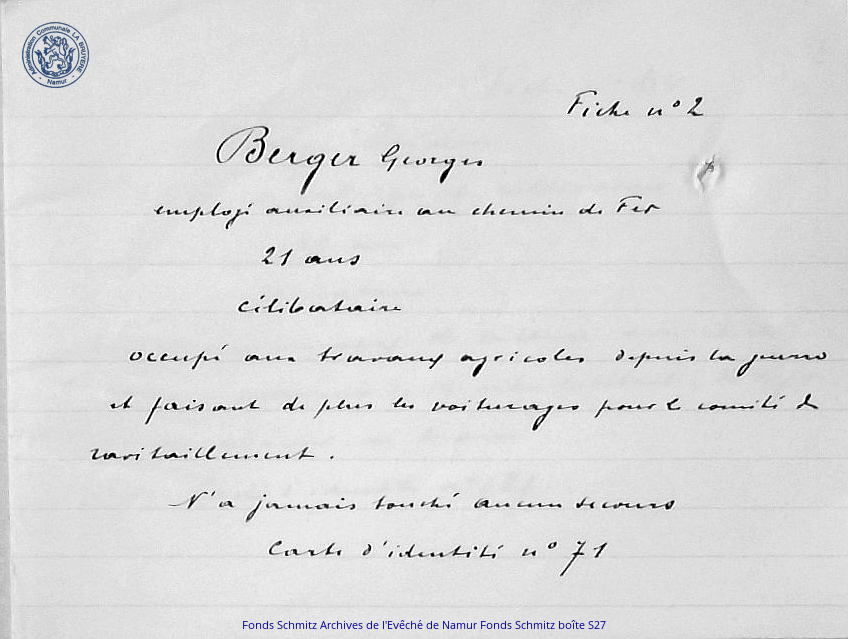 Administration Communale LA BRUYERE
- Namur -
Fiche n° 2
Berger Georges
employé auxiliaire au chemin de Fer
21 ans
célibataire
occupé aux travaux agricoles depuis la guerre
et faisant de plus les voiturages pour le comité de
ravitaillement .
N'a jamais touché aucun secours
Carte d'identité n° 71
Fonds Schmitz Archives de l'Evêché de Namur Fonds Schmitz boîte S27